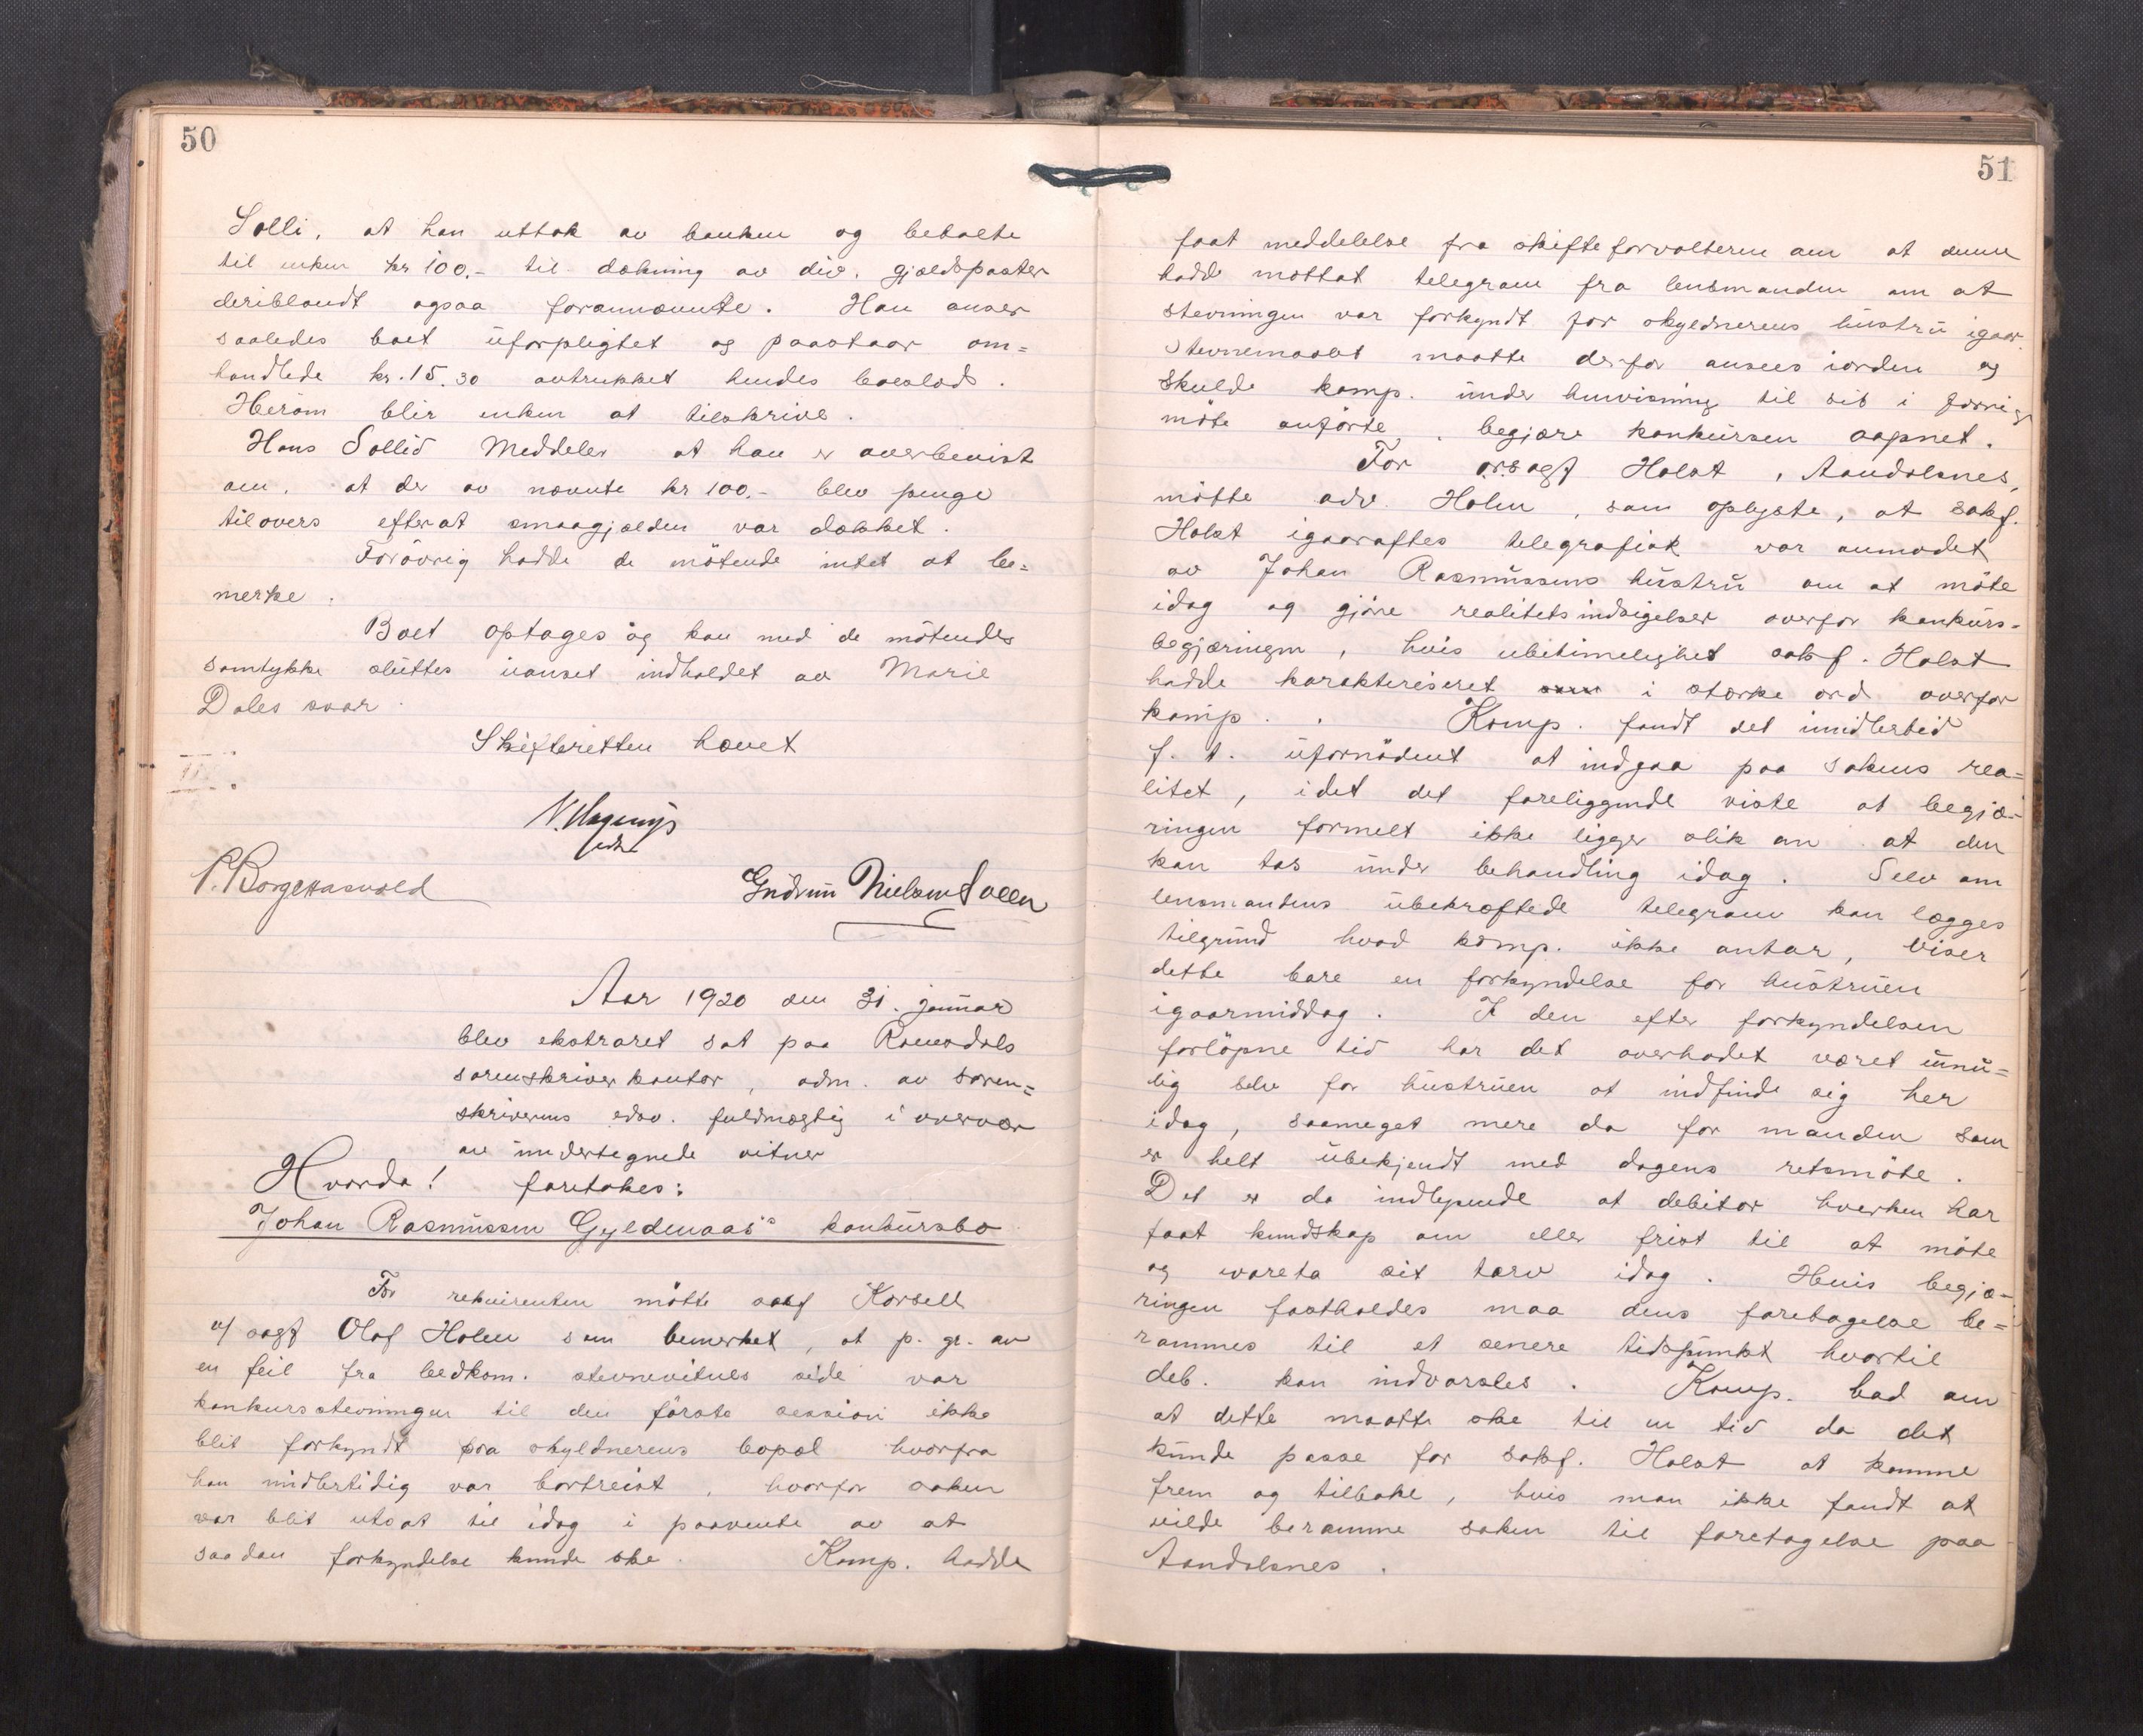 50
Solli, at han uttok av banken og betalte
til enken kr 100.- til dækning av div. gjældsposter
deriblandt ogsaa forannævnte. Han anser
saaledes boet uforpligtet og paastaar om=
handlede kr. 15.30 avtrukket hendes boeslod.
Herom blir enken at tilskrive.
Hans Sollid meddeler at han er overbevist
om, at der av nævnte kr 100.- blev penge
tilovers efterat smaagjælden var dækket.
Forövrig hadde de mötende intet at be=
merke.
Boet optages og kan med de mötendes
samtykke sluttes uanset indholdet av Marie
Dales svar.
Skifteretten hævet
Gudrun Nielsen
Aar 1920 den 31. januar
blev ekstraret sat paa Romsdals
sorenskriverkontor, adm. av soren=
skriverens edsv. fuldmægtig i overvær
av undertegnede vitner
Hvorda! foretokes:
Johan Rasmussen Gyldenaas's konkursbo
For rekvirenten mötte sakf Korsell
o/ sagf Olaf Holm som bemerket, at p. gr. av
en feil fra vedkom. stevnevitnes side var
konkursstevningen til den förste session ikke
blit forkyndt paa skyldnerens bopæl hvorfra
han midlertidig var bortreist, hvorfor saken
var blit utsat til idag i paavente av at
saadan forkyndelse kunde ske. Komp. hadde
51
faat meddelelse fra skifteforvalteren om at denne
hadde mottat telegram fra lensmanden om at
stevningen var forkyndt for skyldnerens hustru igaar.
Stevnemaalet maatte derfor ansees iorden og
skulde komp. under henvisning til sit i forrige
möte anförte, begjære konkursen aapnet.
For orsagf Holst, Aandalsnes,
mötte adv. Holm, som oplyste, at sakf.
Holst igaaraftes telegrafisk var anmodet
av Johan Rasmussens hustru om at möte
idag og gjöre realitetsindsigelser overfor konkurs-
begjæringen, hvis ubetimelighet sakf. Holst
hadde karakteriseret i stærke ord overfor
komp.. Komp. fandt det imidlertid
f. t. ufornödent at indgaa paa sakens rea=
litet, idet det foreliggende viste at begjæ-
ringen formelt ikke ligger slik an at den
kan tas under behandling idag. Selv om
lensmandens ubekræftede telegram kan lægges
tilgrund hvad komp. ikke antar, viser
dette bare en forkyndelse for hustruen
igaarmiddag. I den efter forkyndelsen
forlöpne tid har det overhodet været umu=
lig selv for hustruen at indfinde sig her
idag, saameget mere da for manden som
er helt ubekjendt med dagens retsmöte.
Det er da indlysende at debitor hverken har
faat kundskap om eller frist til at möte
og vareta sit tarv idag. Hvis begjæ-
ringen fastholdes maa dens foretagelse be=
rammes til et senere tidspunkt hvortil
deb. kan indvarsles. Komp. bad om
at dette maatte ske til en tid da det
kunde passe for sakf. Holst at komme
frem og tilbake, hvis man ikke fandt at
vilde beramme saken til foretagelse paa
Aandalsnes.